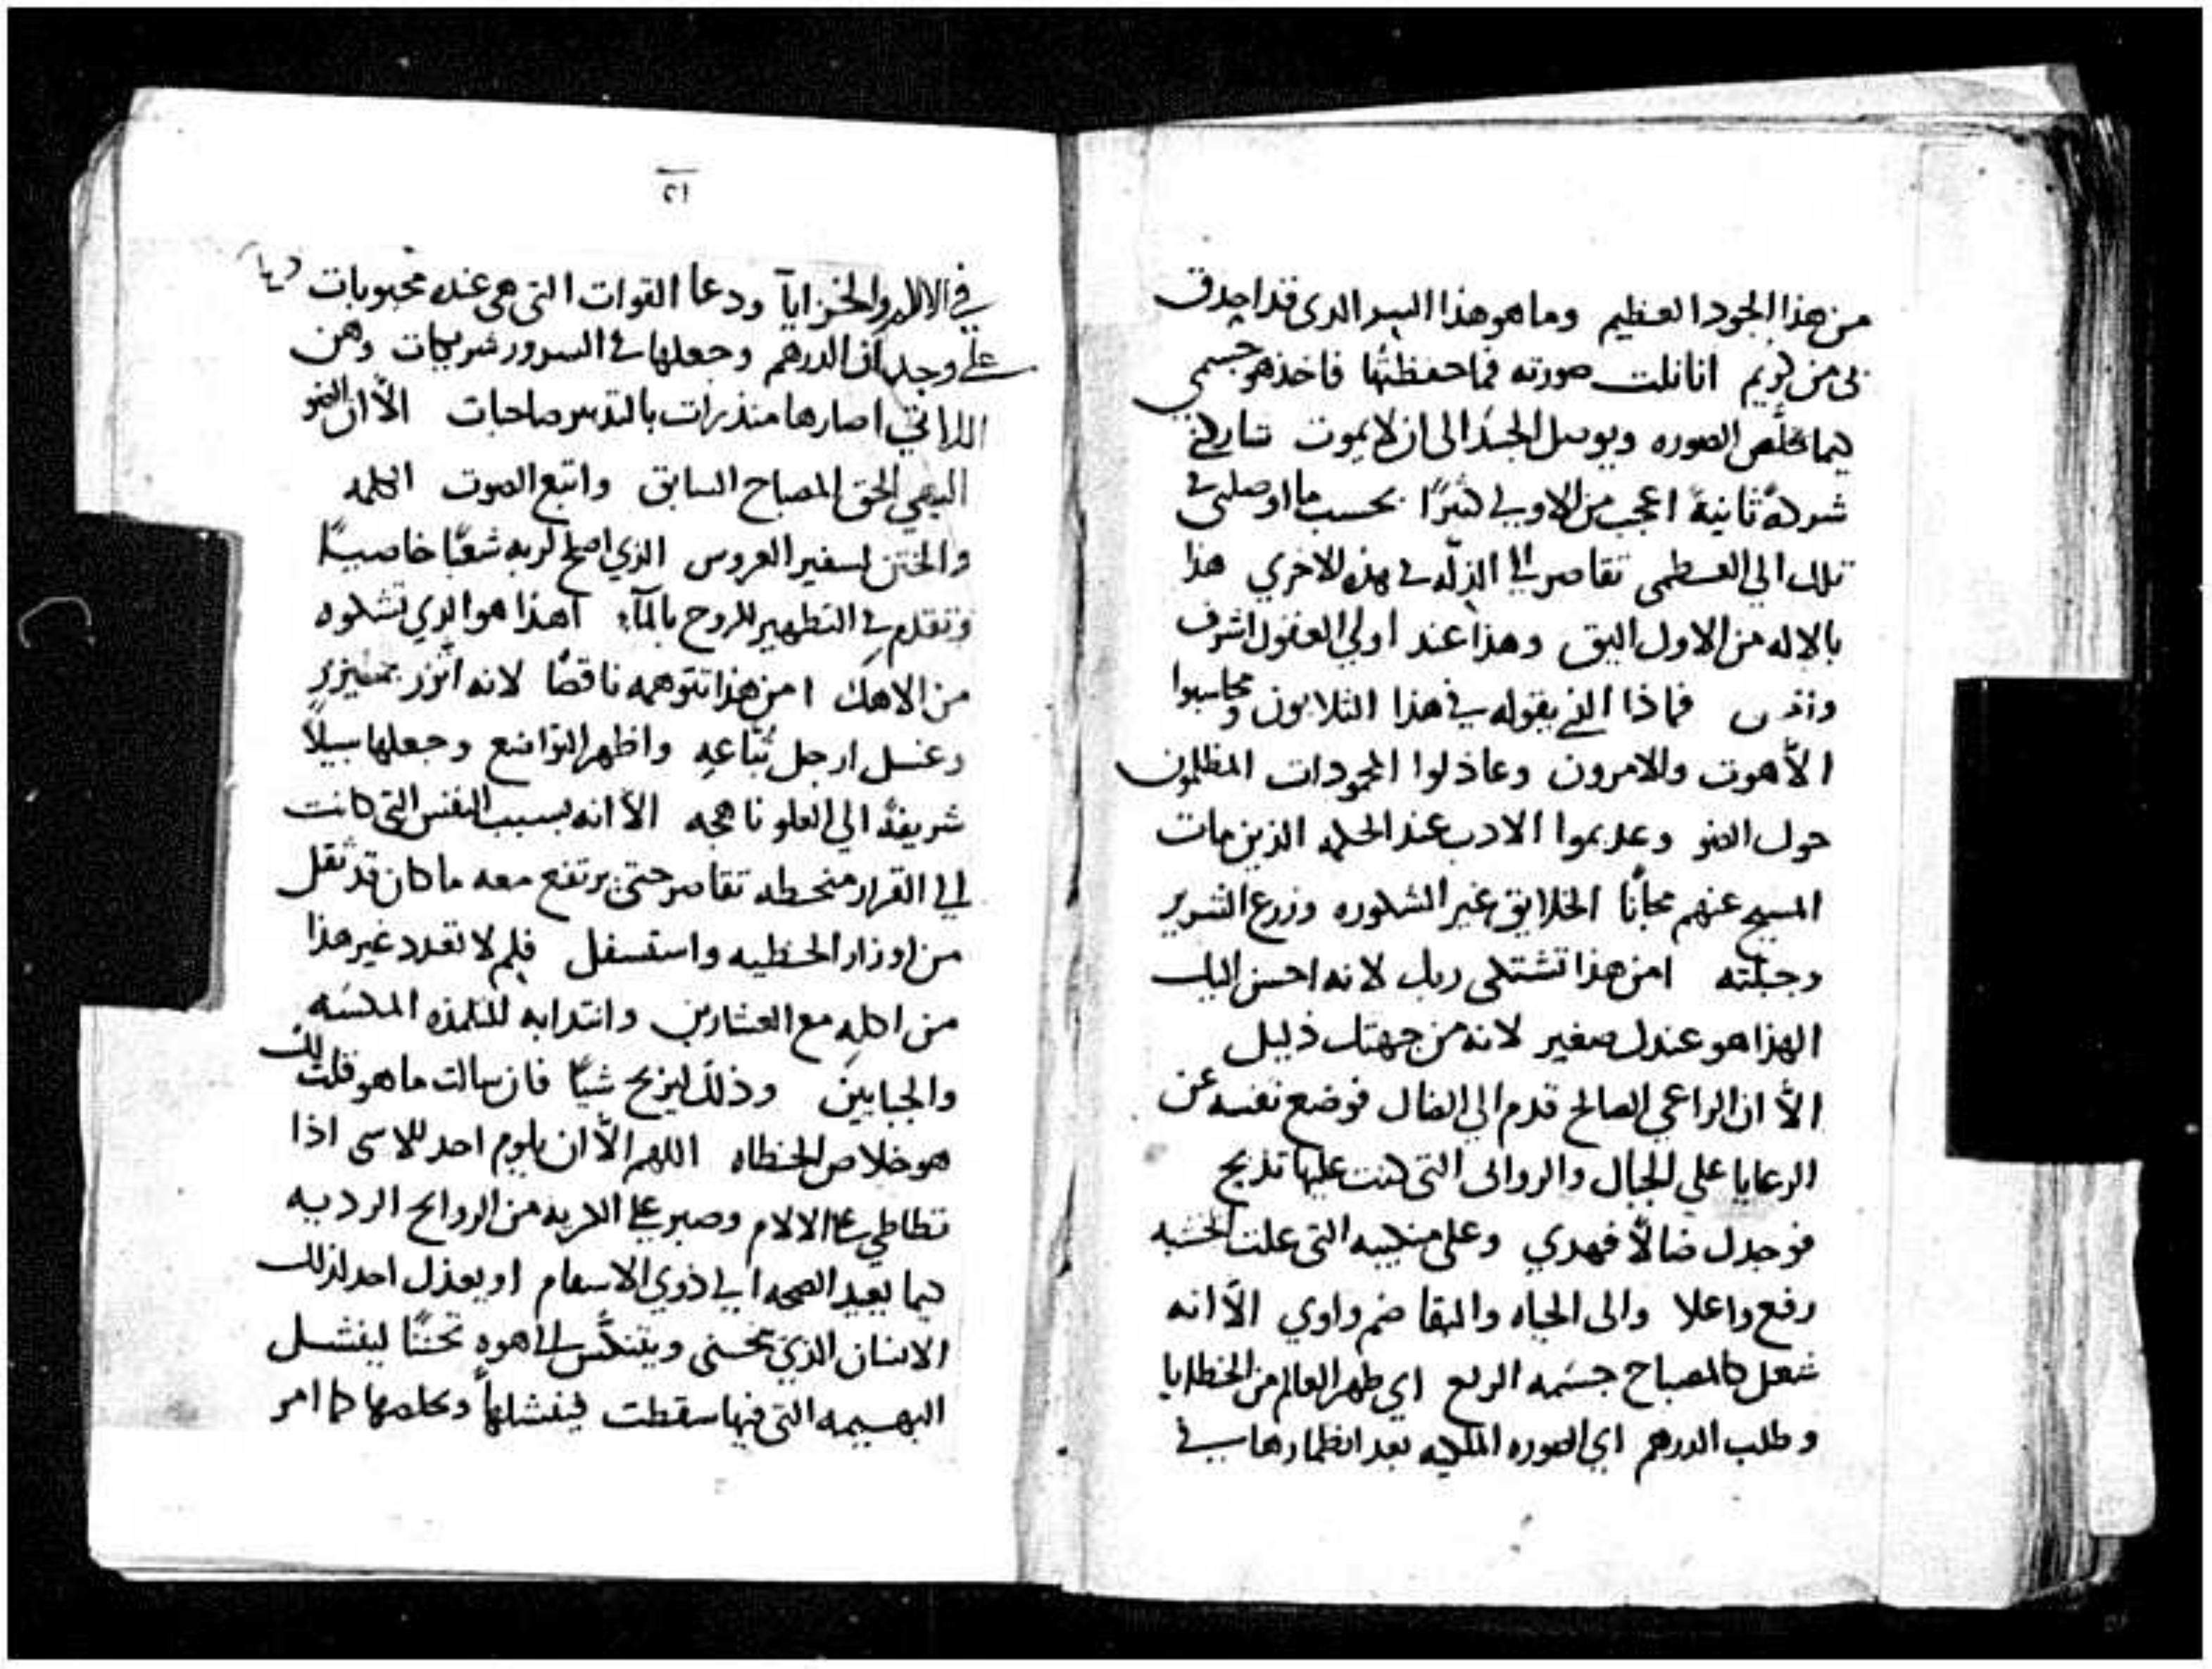 من هذا الجود العظيم وما هو هذا السر الدى قد احدق
بى من كريم انا نلت صورته فما حفظتها فاخذ هو جسمي
كيما يخلص الصوره ويوصل الجسد الى ان لا يموت شاركني
شركة ثانية اعجب من الاولي كثيرًا بحسب ما اوصلنى في
تلك الي العظمى تقاصر الي الذله في هذه الاخري هذا
بالاله من الاول اليق وهذا عند اولي العقول اشرف
فماذا الذي يقوله في هذا الثلابون ومحاسبوا
الاهوت والامرون وعاذلوا المجودات المظلمون
حول الضو وعديموا الادب عند الحكمه الذين مات
المسيح عنهم مجانًا الخلايق غير الشكوره وزرع الشرير
وجبلته امن هذا تشتكى ربك لانه احسن اليك
الهذا هو عندك صغير لانه من جهتك ذليل
الاّ ان الراعي الصالح قدم الي الضال فوضع نفسه عن
الرعايا علي الجبال والروابى التى كنت عليها تذبح
فوجدك ضالاً فهدي وعلى منكبيه التى علت الخشبه
رفع واعلا والى الحياه والبقا ضم واوي الاّ انه
شعل كالمصباح جسمه الربع اي طهر العالم من الخطايا
وطلب الدرهم اي الصوره الملكيه بعد انطمارها في
١٢
في الالام والخزايا ودعا القوات التى هى عنده محبوبات
علي وجدان الدرهم وجعلها في السرور شريكات وهن
اللواتي اصارها منذرات بالتدبير صاحبات الاّ ان الضو
البهي لحق المصباح السابق واتبع الصوت الكلمه
والختن لسفير العروس الذي اصلح لربه شعبًا خاصيًا
وتقدم في التطهير للروح بالمآء اهذا هو الذي تشكوه
من الاهك امن هذا تتوهمه ناقصًا لانه اتزر بميزر
وغسل ارجل تبّاعه واظهر التواضع وجعلها سبيلاً
شريفة الي العلو ناهجه الاّ انه بسبب النفس التى كانت
الي القرار منحطه تقاصر حتى يرتفع معه ما كان قد ثقل
من اوزار الخطيه واستسفل فلم لا تعدد غير هذا
من اكله مع العشارين وانتدابه للتلمذه المكسه
والجبايين وذلك ليربح شيًا فان سالت ما هو قلت لك
هو خلاص الخطاه اللهم الاّ ان يلوم احد للاسى اذا
تطاطي علي الالام وصبر علي الكريه من الروايح الرديه
كيما يعيد الصحه الي ذوي الاسقام او يعذل احد لذلك
الانسان الذي ينحنى ويتنكّس الي هوه تحننًا لينشل
البهيمه التى فيها سقطت فينشلها ويخلصها كما امر